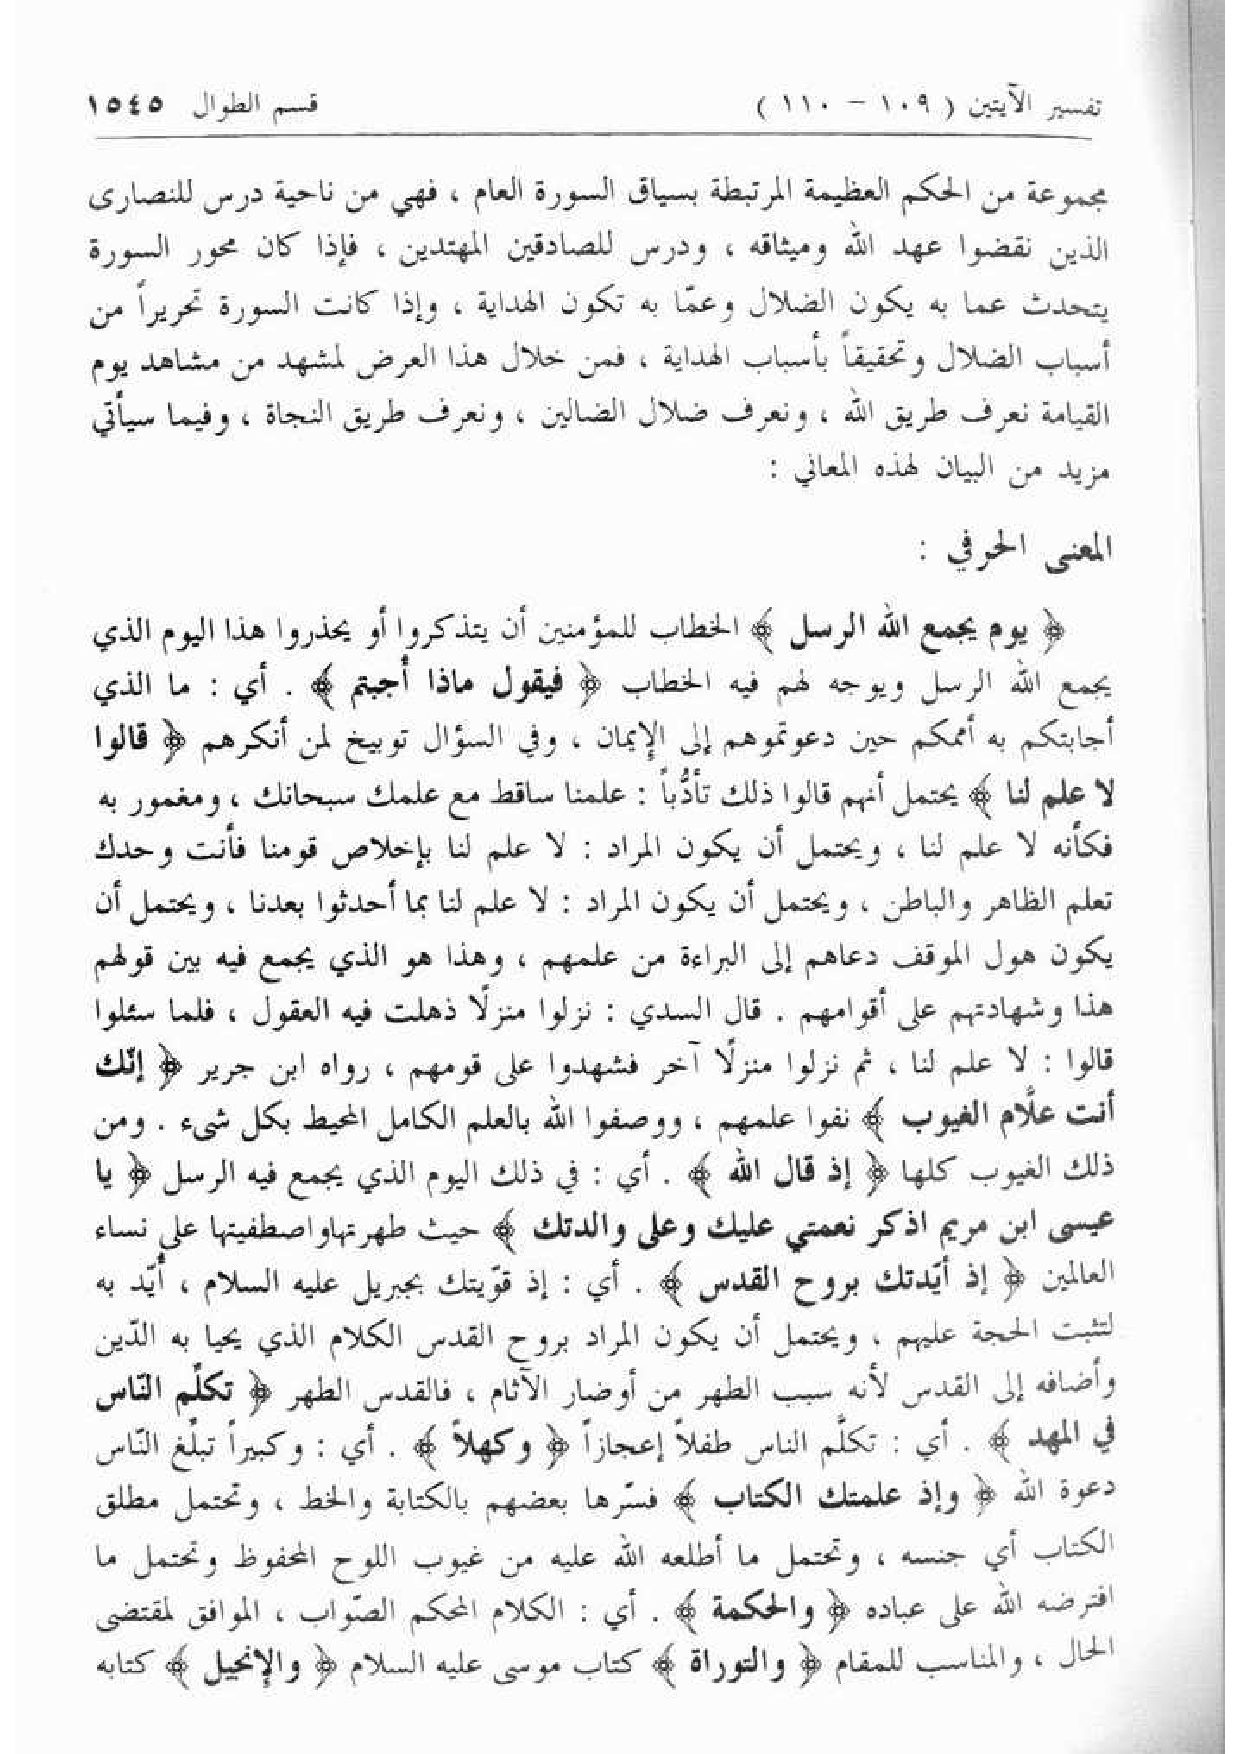 تفسير الآيتين ( ١٠٩ – ١١٠ ) قسم الطوال ١٥٤٥
مجموعة من الحكم العظيمة المرتبطة بسياق السورة العام ، فهي من ناحية درس للنصارى
الذين نقضوا عهد الله وميثاقه ، ودرس للصادقين المهتدين ، فإذا كان محور السورة
يتحدث عما به يكون الضلال وعمّا به تكون الهداية ، وإذا كانت السورة تحريراً من
أسباب الضلال وتحقيقاً بأسباب الهداية ، فمن خلال هذا العرض لمشهد من مشاهد يوم
القيامة نعرف طريق الله ، ونعرف ضلال الضالين ، ونعرف طريق النجاة ، وفيما سيأتي
مزيد من البيان لهذه المعاني :
المعنى الحرفي :
﴿ يوم يجمع الله الرسل ﴾ الخطاب للمؤمنين أن يتذكروا أو يحذروا هذا اليوم الذي
يجمع الله الرسل ويوجه لهم فيه الخطاب ﴿ فيقول ماذا أجبتم ﴾ . أي : ما الذي
أجابتكم به أممكم حين دعوتموهم إلى الإيمان ، وفي السؤال توبيخ لمن أنكرهم ﴿ قالوا
لا علم لنا ﴾ يحتمل أنهم قالوا ذلك تأدُّباً : علمنا ساقط مع علمك سبحانك ، ومغمور به
فكأنه لا علم لنا ، ويحتمل أن يكون المراد : لا علم لنا بإخلاص قومنا فأنت وحدك
تعلم الظاهر والباطن ، ويحتمل أن يكون المراد : لا علم لنا بما أحدثوا بعدنا ، ويحتمل أن
يكون هول الموقف دعاهم إلى البراءة من علمهم ، وهذا هو الذي يجمع فيه بين قولهم
هذا وشهادتهم على أقوامهم . قال السدي : نزلوا منزلًا ذهلت فيه العقول ، فلما سئلوا
قالوا : لا علم لنا ، ثم نزلوا منزلًا آخر فشهدوا على قومهم ، رواه ابن جرير ﴿ إنّك
أنت علّام الغيوب ﴾ نفوا علمهم ، ووصفوا الله بالعلم الكامل المحيط بكل شىء . ومن
ذلك الغيوب كلها ﴿ إذ قال الله ﴾ . أي : في ذلك اليوم الذي يجمع فيه الرسل ﴿ يا
عيسى ابن مريم اذكر نعمتي عليك وعلى والدتك ﴾ حيث طهرتها واصطفيتها على نساء
العالمين ﴿ إذ أيّدتك بروح القدس ﴾ . أي : إذ قوّيتك بجبريل عليه السلام ، أيّد به
لتثبت الحجة عليهم ، ويحتمل أن يكون المراد بروح القدس الكلام الذي يحيا به الدّين
وأضافه إلى القدس لأنه سبب الطهر من أوضار الآثام ، فالقدس الطهر ﴿ تكلّم النّاس
في المهد ﴾ . أي : تكلّم الناس طفلاً إعجازاً ﴿ وكهلاً ﴾ . أي : وكبيراً تبلّغ النّاس
دعوة الله ﴿ وإذ علمتك الكتاب ﴾ فسّرها بعضهم بالكتابة والخط ، وتحتمل مطلق
الكتاب أي جنسه ، وتحتمل ما أطلعه الله عليه من غيوب اللوح المحفوظ وتحتمل ما
افترضه الله على عباده ﴿ والحكمة ﴾ . أي : الكلام المحكم الصّواب ، الموافق لمقتضى
الحال ، والمناسب للمقام ﴿ والتوراة ﴾ كتاب موسى عليه السلام ﴿ والإنجيل ﴾ كتابه